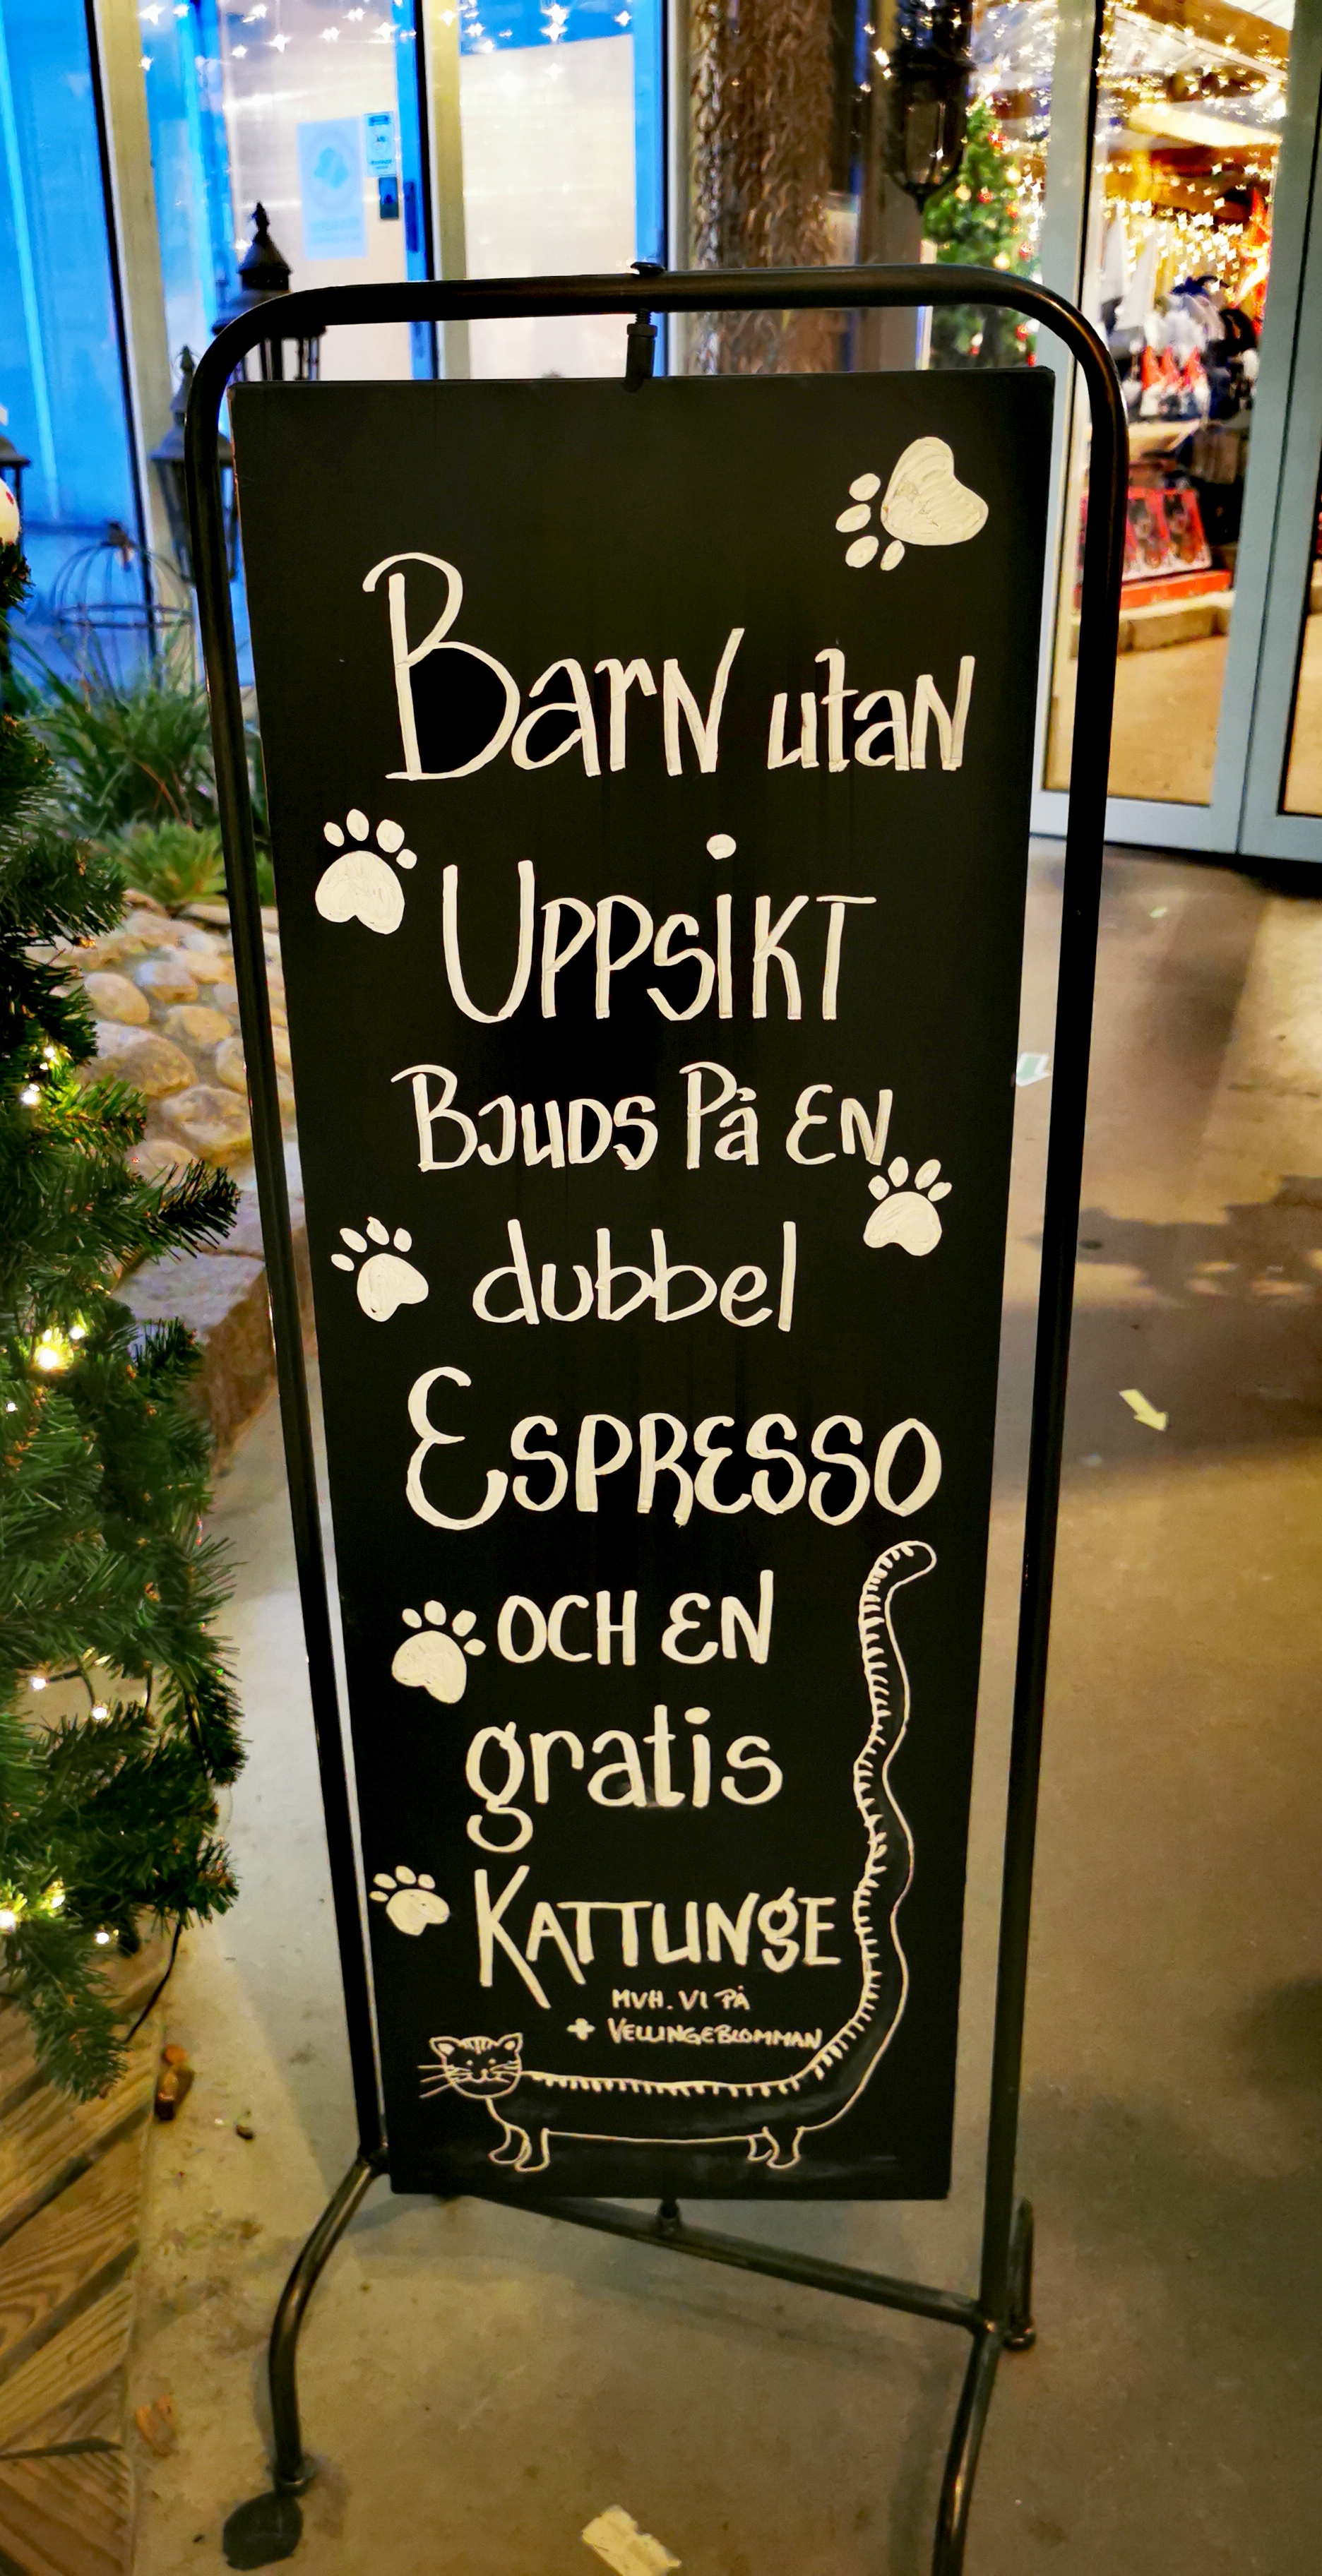 Barn utan
UPPSIKT
BJUDS På EN
dubbel
ESPRESSO
OCH EN
gratis
KATTUNgE
MVH. VI PÅ
+ VELLINGEBLOMMAN